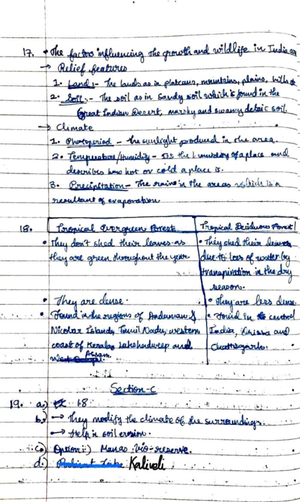 17. → The factors influencing the growth and wildlife in India are
→ Relief features
1. Land :- The lands as in plateaus, mountains, plains, hills &
2. Soil :- The soil as in Sandy soil which is found in the
Great Indian Desert, marshy and deltaic soil
→ Climate
1. Photoperiod - The sunlight produced in the area.
2. Temperature/Humidity - It's the humidity of a place and
describes how hot or cold a place is.
3. Precipitation - The rains in the areas which is a
resultant of evaporation
18. Tropical Evergreen Forest
• They don't shed their leaves as
they are green throughout the year
• They are dense.
• Found in the regions of Andaman &
Nicobar Islands, Tamil Nadu, western
coast of Kerala, Lakshadweep and
Assam
Tropical Deciduous Forest
• They shed their leaves
due to loss of water by
transpiration in the dry
season.
• They are less dense.
• Found in the central
India, and
Chattisgarh.
Section-C
19. a) 68
b) → They modify the climate of the surroundings.
→ Help in soil erosion.
c) Option :) Manas Bio-reserve
d) Kaliveli